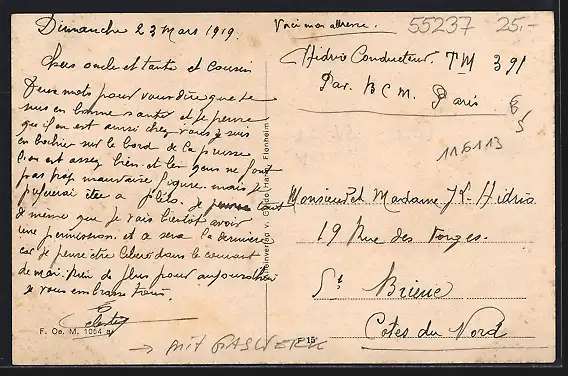 Dimanche 23 Mars 1919.
Chers oncle et tante et cousin
Deux mots pour vous dire que je
suis en bonne santé et je pense
qu'il en est aussi chez vous je suis
en sur le bord de la
l'on est assez bien et les gens ne font
pas trop mauvaise figure. mais je
être a
je
de même que je vais bientôt avoir
une permission. et sa sera la dernière
car je pense être libéré dans le courant
de mai. Rien de plus pour aujourd'hui
je vous embrasse tous.
F. Oe. M. 1054
→ mit GASWERK
v. Guido Flonheim
Voici mon adresse.
55237 25.-
Hidrio Conducteur. TM 391
Par. BCM. Paris
116113
Monsieur et Madame Hidrio
19 Rue des Forges.
St Brieuc
Côtes du Nord
P 15